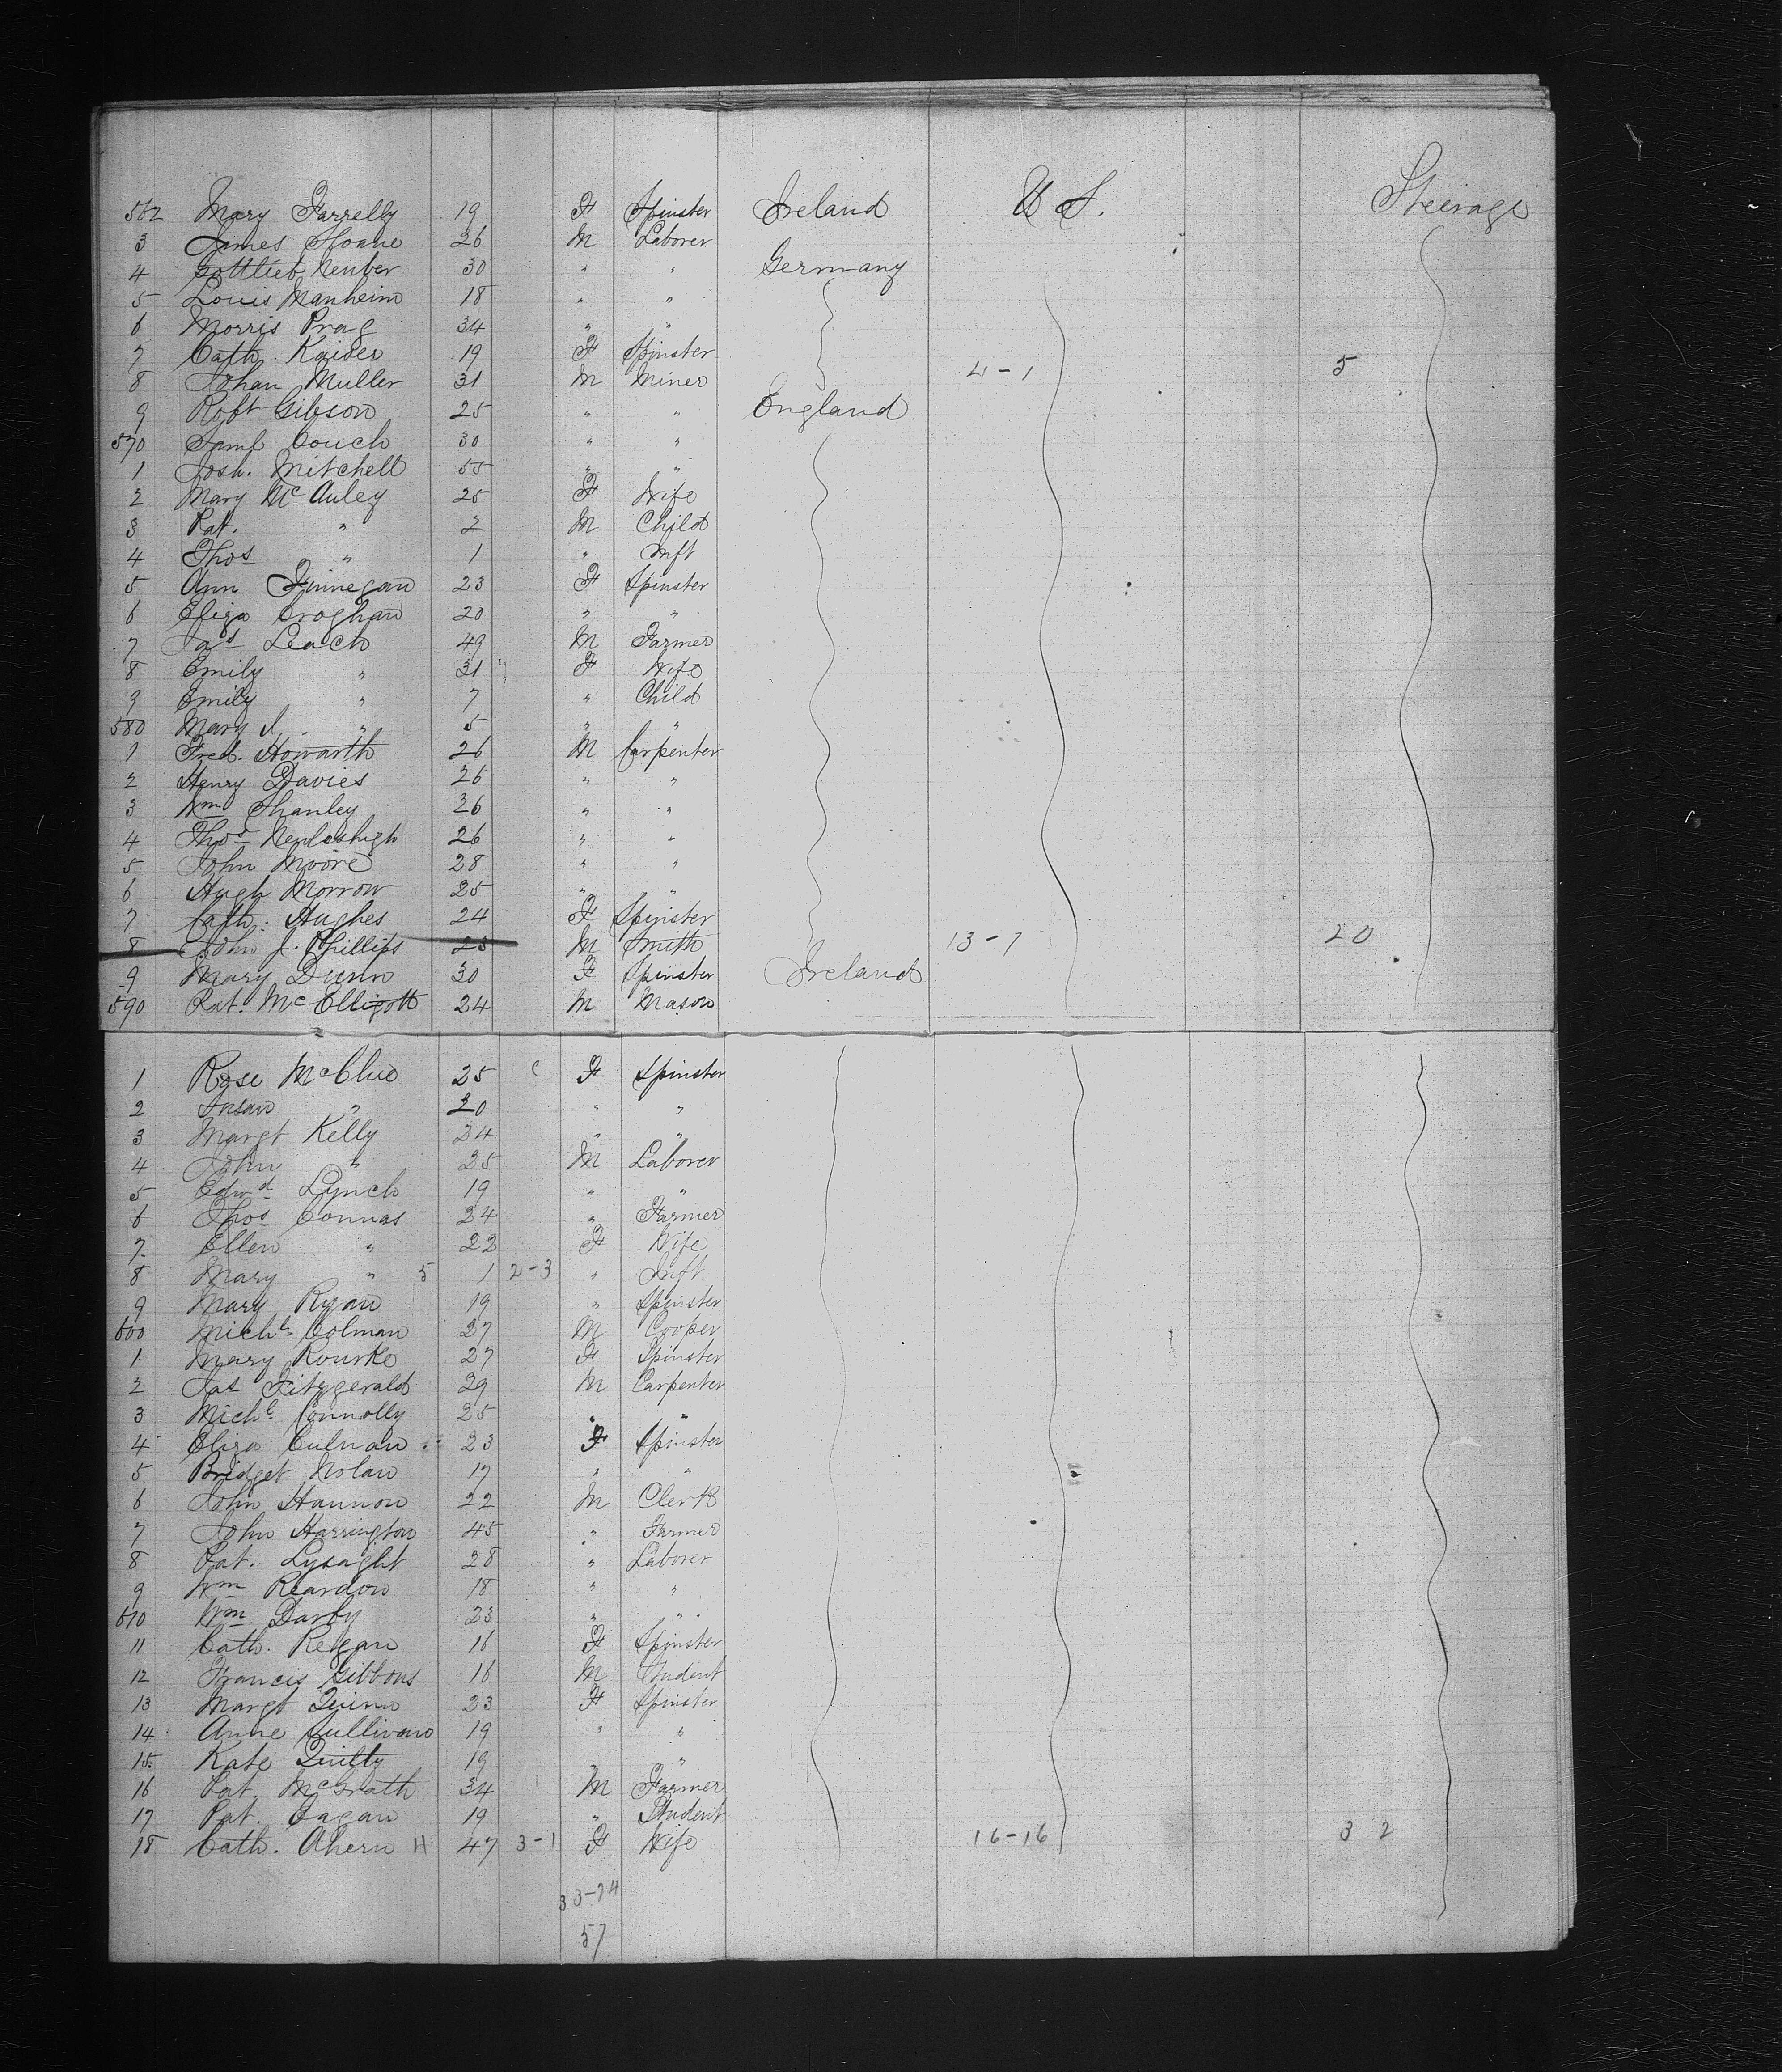 562 Mary Farrelly 19 F Spinster Ireland U S. Steerage
3 James Sloane 26 M Laborer
4 Gottlieb Neuber 30 " " Germany
5 Louis Manheim 18 " "
6 Morris Prag 34 " "
7 Cath. Kaiser 19 F Spinster
8 Johan Muller 31 M Miner 4-1 5
9 Robt Gibson 25 " " England
570 Saml Couch 30 " "
1 Josh. Mitchell 55 " "
2 Mary McAuley 25 F Wife
3 Pat. " 2 M Child
4 Thos " 1 " Inft
5 Ann Finnegan 23 F Spinster
6 Eliza Croghan 20 " "
7 Jas Leach 49 M Farmer
8 Emily " 31 F Wife
9 Emily " 7 " Child
580 Mary J. " 5 " "
1 Fred. Howarth 26 M Carpenter
2 Henry Davies 26 " "
3 Wm Shanley 26 " "
4 Thos 26 " "
5 John Moore 28 " "
6 Hugh Morrow 25 " "
7 Cath: Hughes 24 F Spinster
8 John J. Phillips 23 M Smith 13-7 20
9 Mary Dunn 30 F Spinster Ireland
590 Pat. McElligott 24 M Mason
1 Rose McClue 25 c F Spinster
2 Susan " 20 " "
3 Margt Kelly 24 " "
4 John " 25 M Laborer
5 Edwd Lynch 19 " "
6 Thos Connas 24 " Farmer
7 Ellen " 22 F Wife
8 Mary " 5 1 2-3 " Inft
9 Mary Ryan 19 " Spinster
600 Michl. Colman 27 M Cooper
1 Mary Rourke 27 F Spinster
2 Jas Fitzgerald 29 M Carpenter
3 Michl. Connolly 25 " "
4 Eliza Culnan 23 F Spinster
5 Bridget Nolan 17 " "
6 John Hannon 22 M Clerk
7 John Harrington 45 " Farmer
8 Pat. Lysaght 28 " Laborer
9 Wm Reardon 18 " "
610 Wm Darby 23 " "
11 Cath. Regan 16 F Spinster
12 Francis Gibbons 16 M Student
13 Margt Quinn 23 F Spinster
14 Anne Sullivan 19 " "
15 Kate Quilty 19 " "
16 Pat. McGrath 34 M Farmer
17 Pat. Eagan 19 " Student
18 Cath. Ahern H 47 3-1 F Wife 16-16 32
33-24
57